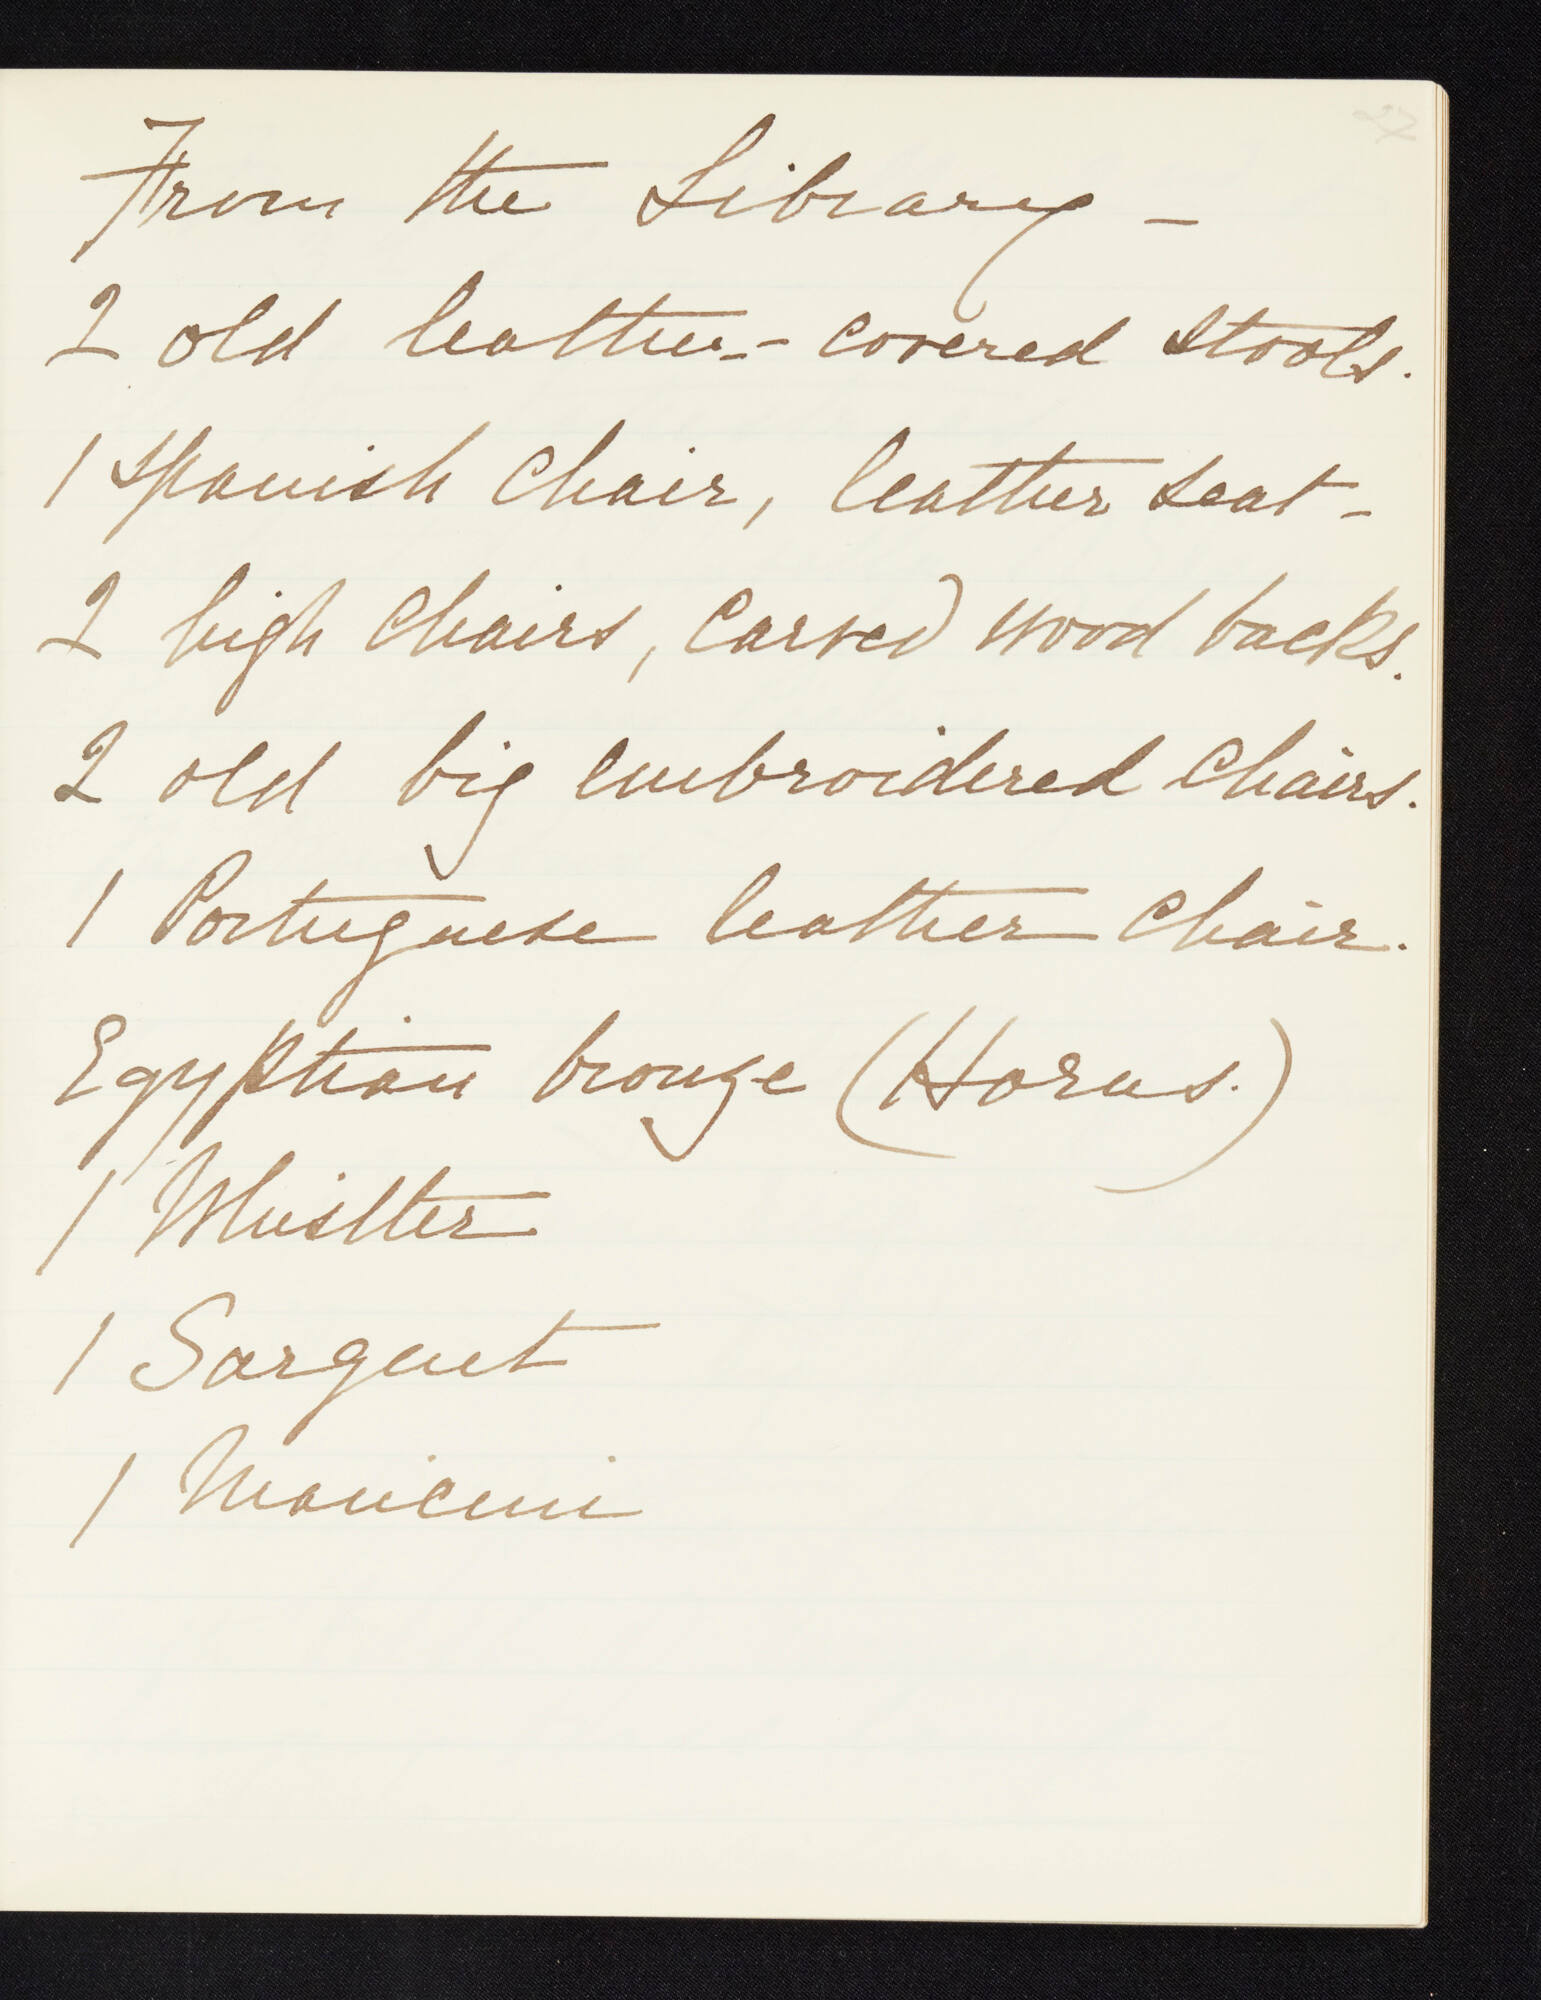 27
From the Library –
2 old leather-covered stools.
1 Spanish chair, leather seat –
2 high chairs, carved wood backs.
2 old big embroidered chairs.
1 Portuguese leather chair.
Egyptian bronze (Horus.)
1 Whistler
1 Sargent
1 Mancini